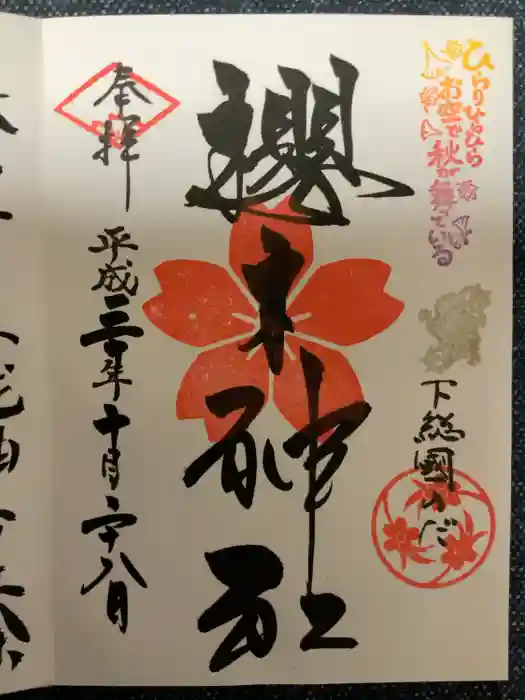 ひらりひらひら
お空で
秋が舞っている
下総國のだ
櫻木神社
奉拝
平成三十年十月二十八日